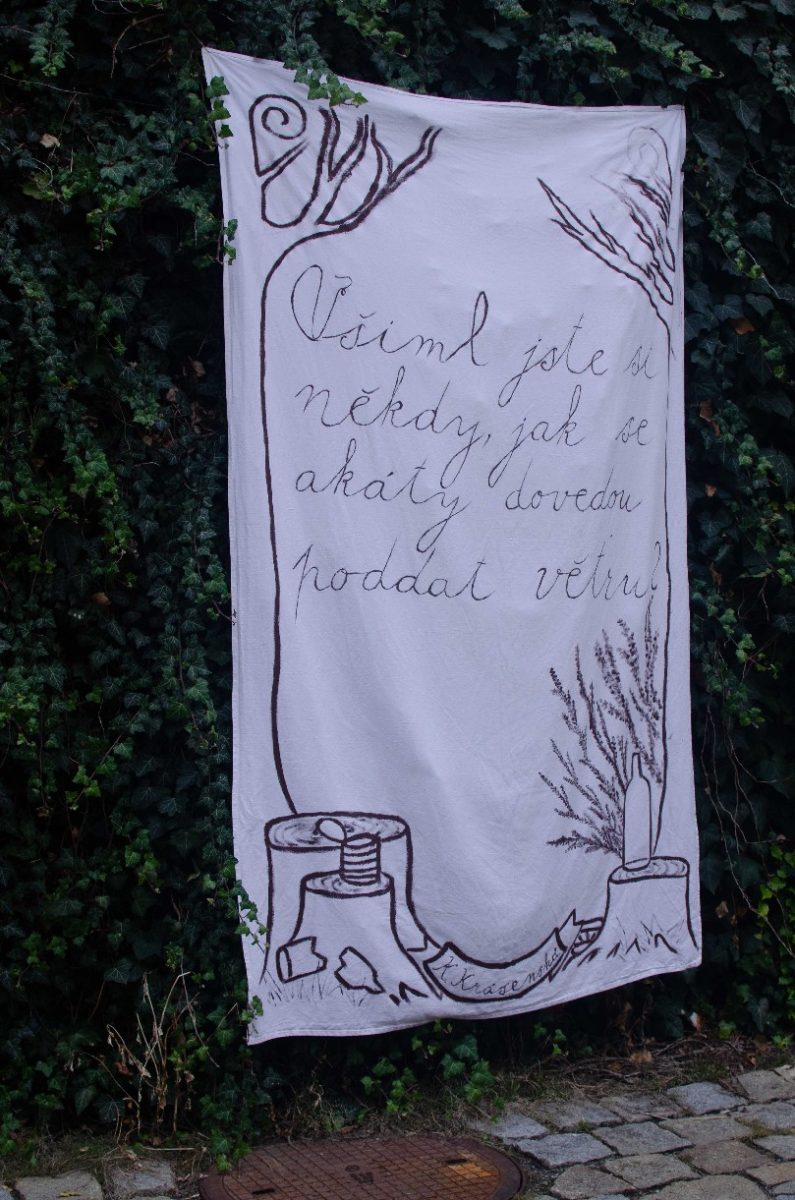 Všiml jste si
někdy, jak se
akáty dovedou
poddat větru?
K. Krásenská